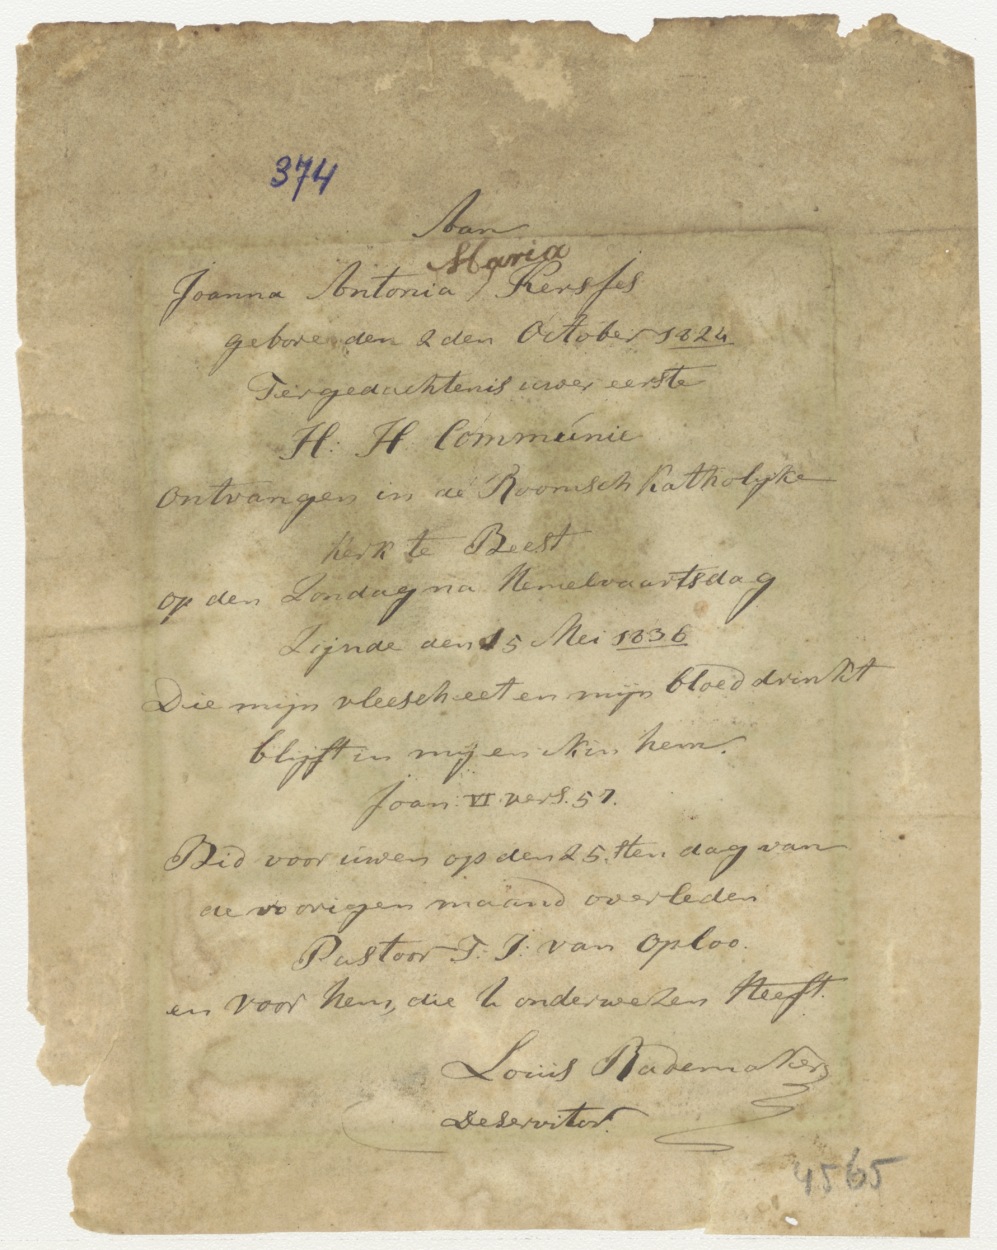 374
Aan
Maria
Joanna Antonia Kersjes
geboren den 2 den October 1824
Ter gedachtenis uwer eerste
H: H Communie
ontvangen in de Roomsch Katholyke
Kerk te Beest
op den Zondag na Hemelvaartsdag
Zijnde den 15 Mei 1836
Die mijn vleesch eet en mijn bloed drinkt
blijft in mij en ik in hem.
Joan VI vers. 57.
Bid voor uwen op den 25.sten dag van
de voorigen maand overleden
Pastoor T. J. van Oploo.
en voor hem, die U onderwezen Heeft.
Louis Rademaker
Deservitor.
4565